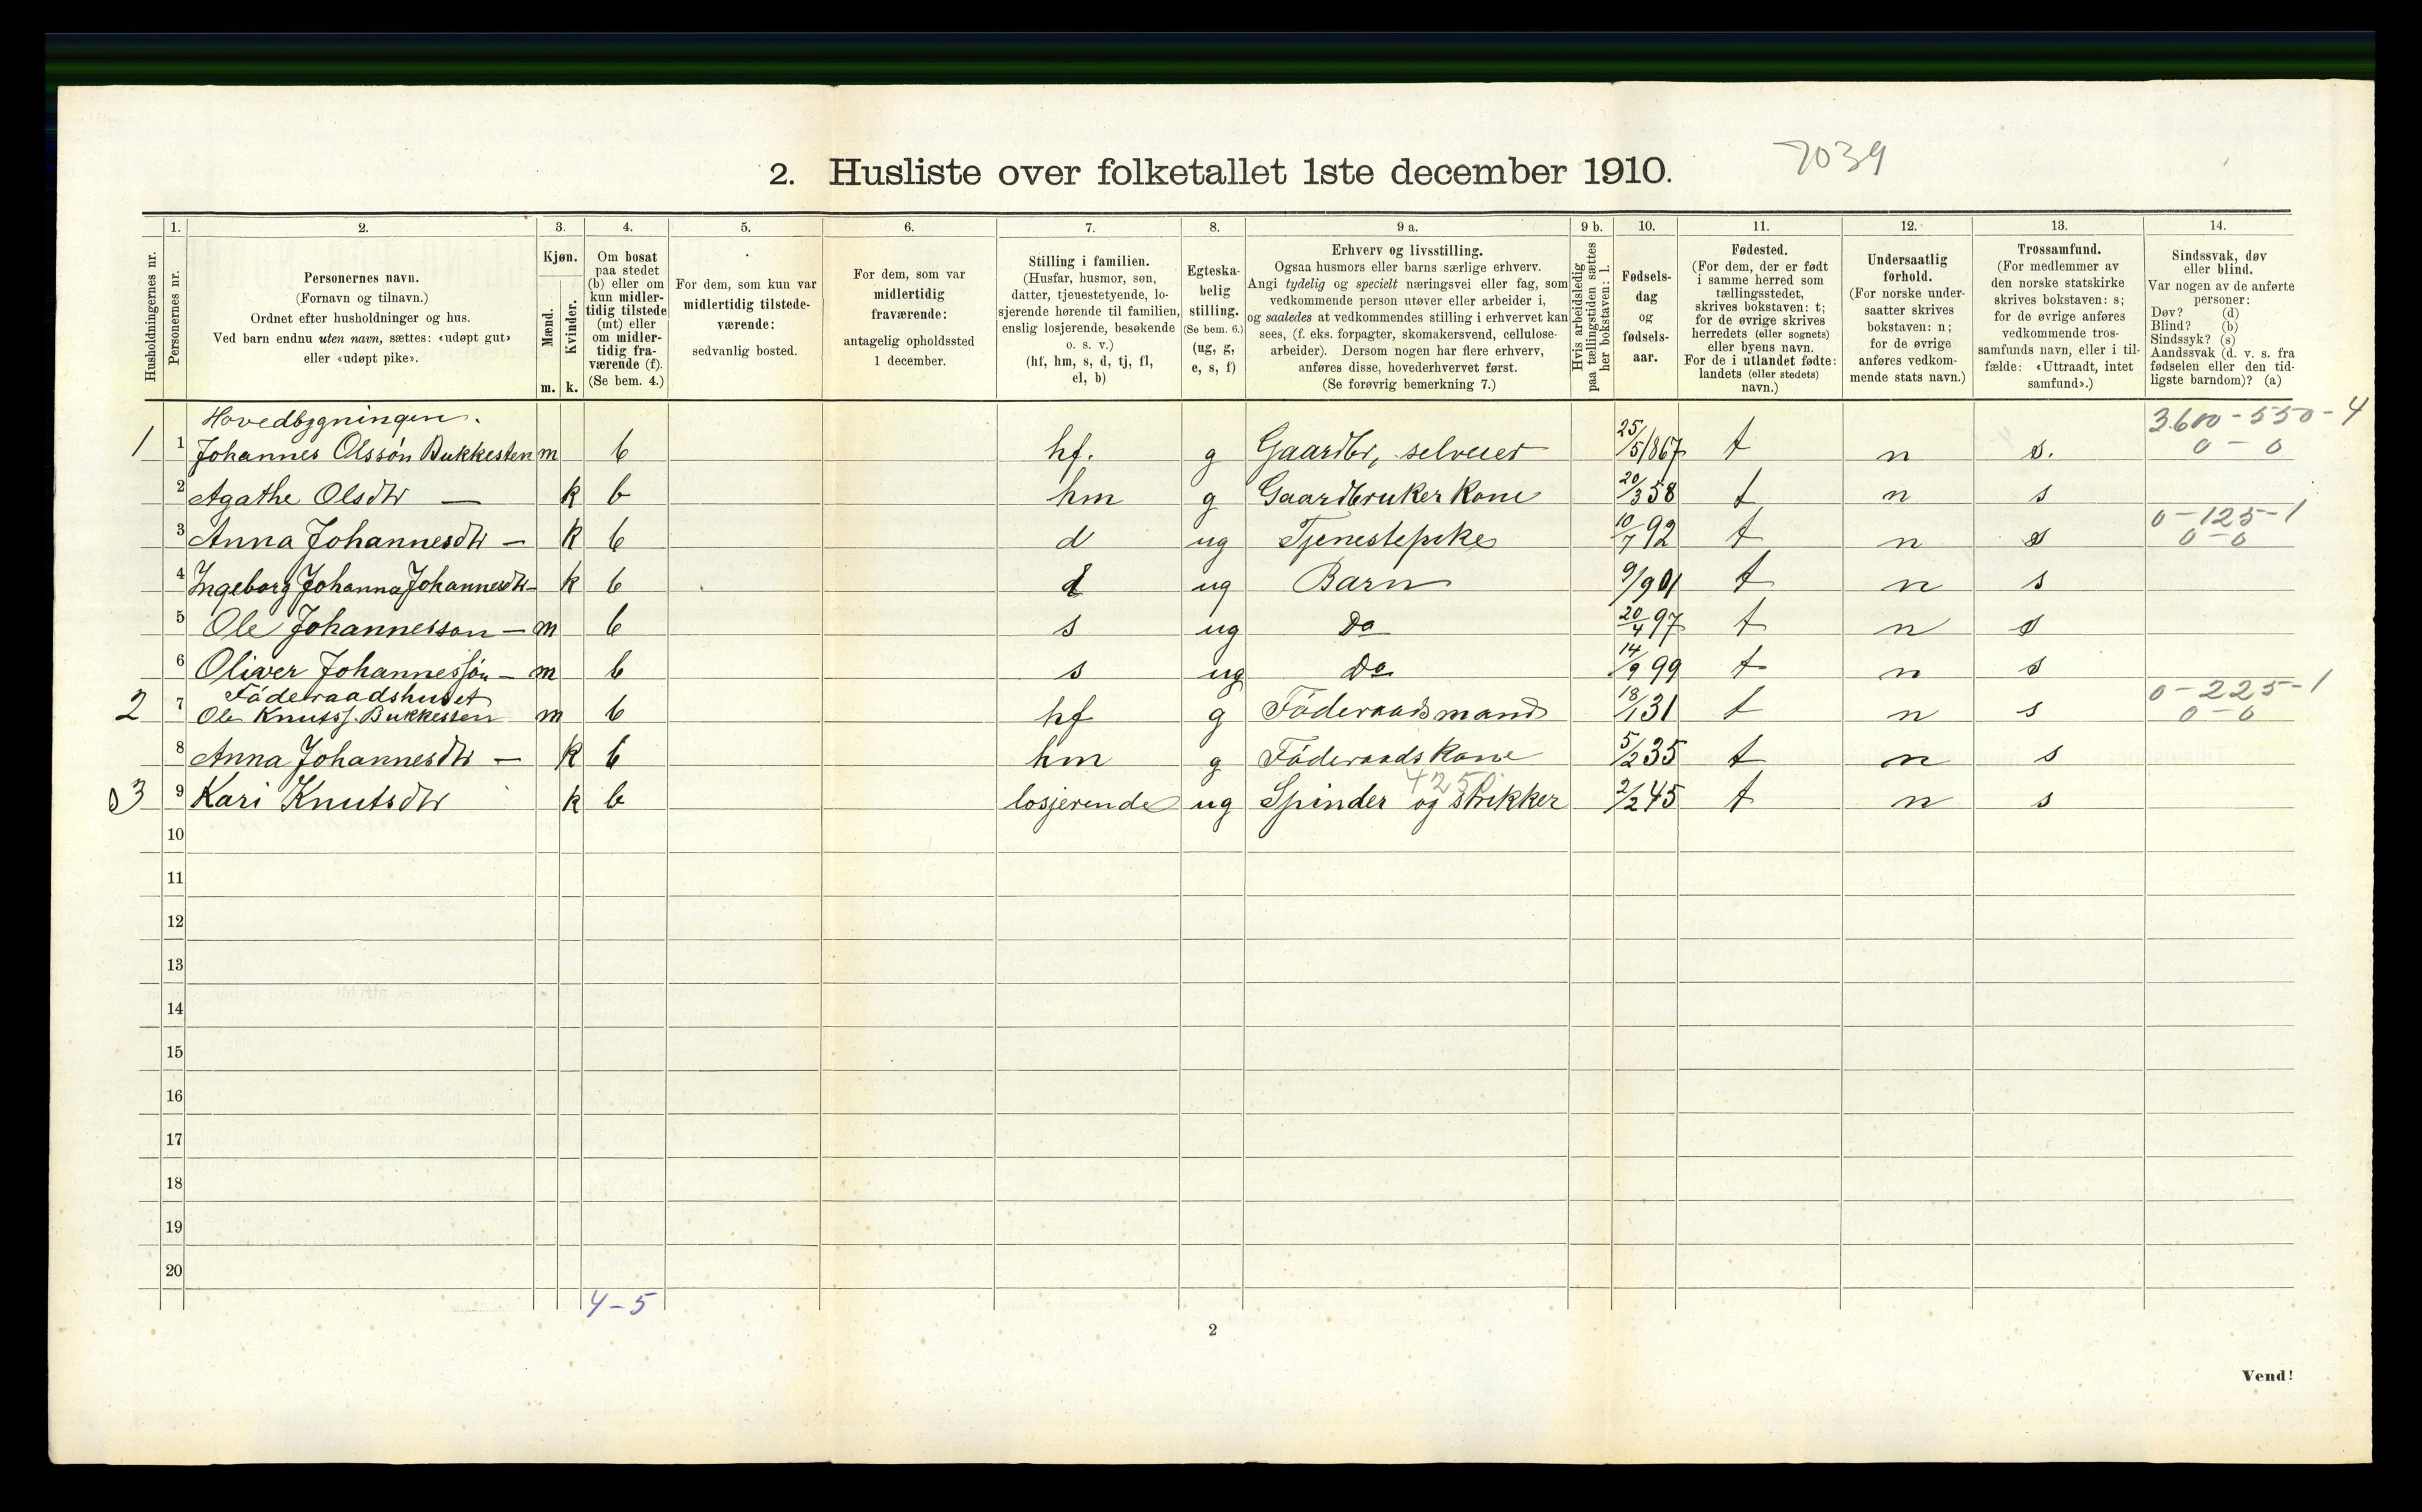 7039
2. Husliste over folketallet 1ste december 1910.
1. 2. 3. 4. 5. 6. 7. 8. 9 a. 9 b. 10. 11. 12. 13. 14.
Husholdningernes nr.
Personernes nr.
Personernes navn.
(Fornavn og tilnavn.)
Ordnet efter husholdninger og hus.
Ved barn endnu uten navn, sættes: «udøpt gut»
eller «udøpt pike».
Kjøn.
Mænd.
Kvinder.
m. k.
Om bosat
paa stedet
(b) eller om
kun midler-
tidig tilstede
(mt) eller
om midler-
tidig fra-
værende (f).
(Se bem. 4.)
For dem, som kun var
midlertidig tilstede-
værende:
sedvanlig bosted.
For dem, som var
midlertidig
fraværende:
antagelig opholdssted
1 december.
Stilling i familien.
(Husfar, husmor, søn,
datter, tjenestetyende, lo-
sjerende hørende til familien,
enslig losjerende, besøkende
o. s. v.)
(hf, hm, s, d, tj, fl,
el, b)
Egteska-
belig
stilling.
(Se bem. 6.)
(ug, g,
e, s, f)
Erhverv og livsstilling.
Ogsaa husmors eller barns særlige erhverv.
Angi tydelig og specielt næringsvei eller fag, som
vedkommende person utøver eller arbeider i,
og saaledes at vedkommendes stilling i erhvervet kan
sees, (f. eks. forpagter, skomakersvend, cellulose-
arbeider). Dersom nogen har flere erhverv,
anføres disse, hovederhvervet først.
(Se forøvrig bemerkning 7.)
Hvis arbeidsledig
paa tællingstiden sættes
her bokstaven: l.
Fødsels-
dag
og
fødsels-
aar.
Fødested.
(For dem, der er født
i samme herred som
tællingsstedet,
skrives bokstaven: t;
for de øvrige skrives
herredets (eller sognets)
eller byens navn.
For de i utlandet fødte:
landets (eller stedets)
navn.)
Undersaatlig
forhold.
(For norske under-
saatter skrives
bokstaven: n;
for de øvrige
anføres vedkom-
mende stats navn.)
Trossamfund.
(For medlemmer av
den norske statskirke
skrives bokstaven: s;
for de øvrige anføres
vedkommende tros-
samfunds navn, eller i til-
fælde: «Uttraadt, intet
samfund».)
Sindssvak, døv
eller blind.
Var nogen av de anførte
personer:
Døv? (d)
Blind? (b)
Sindssyk? (s)
Aandssvak (d. v. s. fra
fødselen eller den tid-
ligste barndom)? (a)
Hovedbygningen.
3.600 - 550 - 4
1 1 Johannes Olssön Bukkesten m b hf. g Gaardbr, selveier 25/5/867 t n s. 0 - 0
2 Agathe Olsdtr — k b hm g Gaardbruker kone 20/3 58 t n s
0 - 125 - 1
3 Anna Johannesdtr — k b d ug Tjenestepike 10/7 92 t n s 0 - 0
4 Ingeborg Johanna Johannesdtr — k b d ug Barn 9/9 01 t n s
5 Ole Johannesson — m b s ug Do 20/4 97 t n s
6 Oliver Johannessön — m b s ug Do 14/9 99 t n s
Föderaadshuset
0 - 225 - 1
2 7 Ole Knutss. Bukkesten m b hf g Föderaadsmand 18/1 31 t n s 0 - 0
8 Anna Johannesdtr — k b hm g Föderaadskone 5/2 35 t n s
4250
3 9 Kari Knutsdtr k b losjerende ug Spinder og strikker 2/2 45 t n s
10
11
12
13
14
15
16
17
18
19
20
4 - 5
2
Vend!